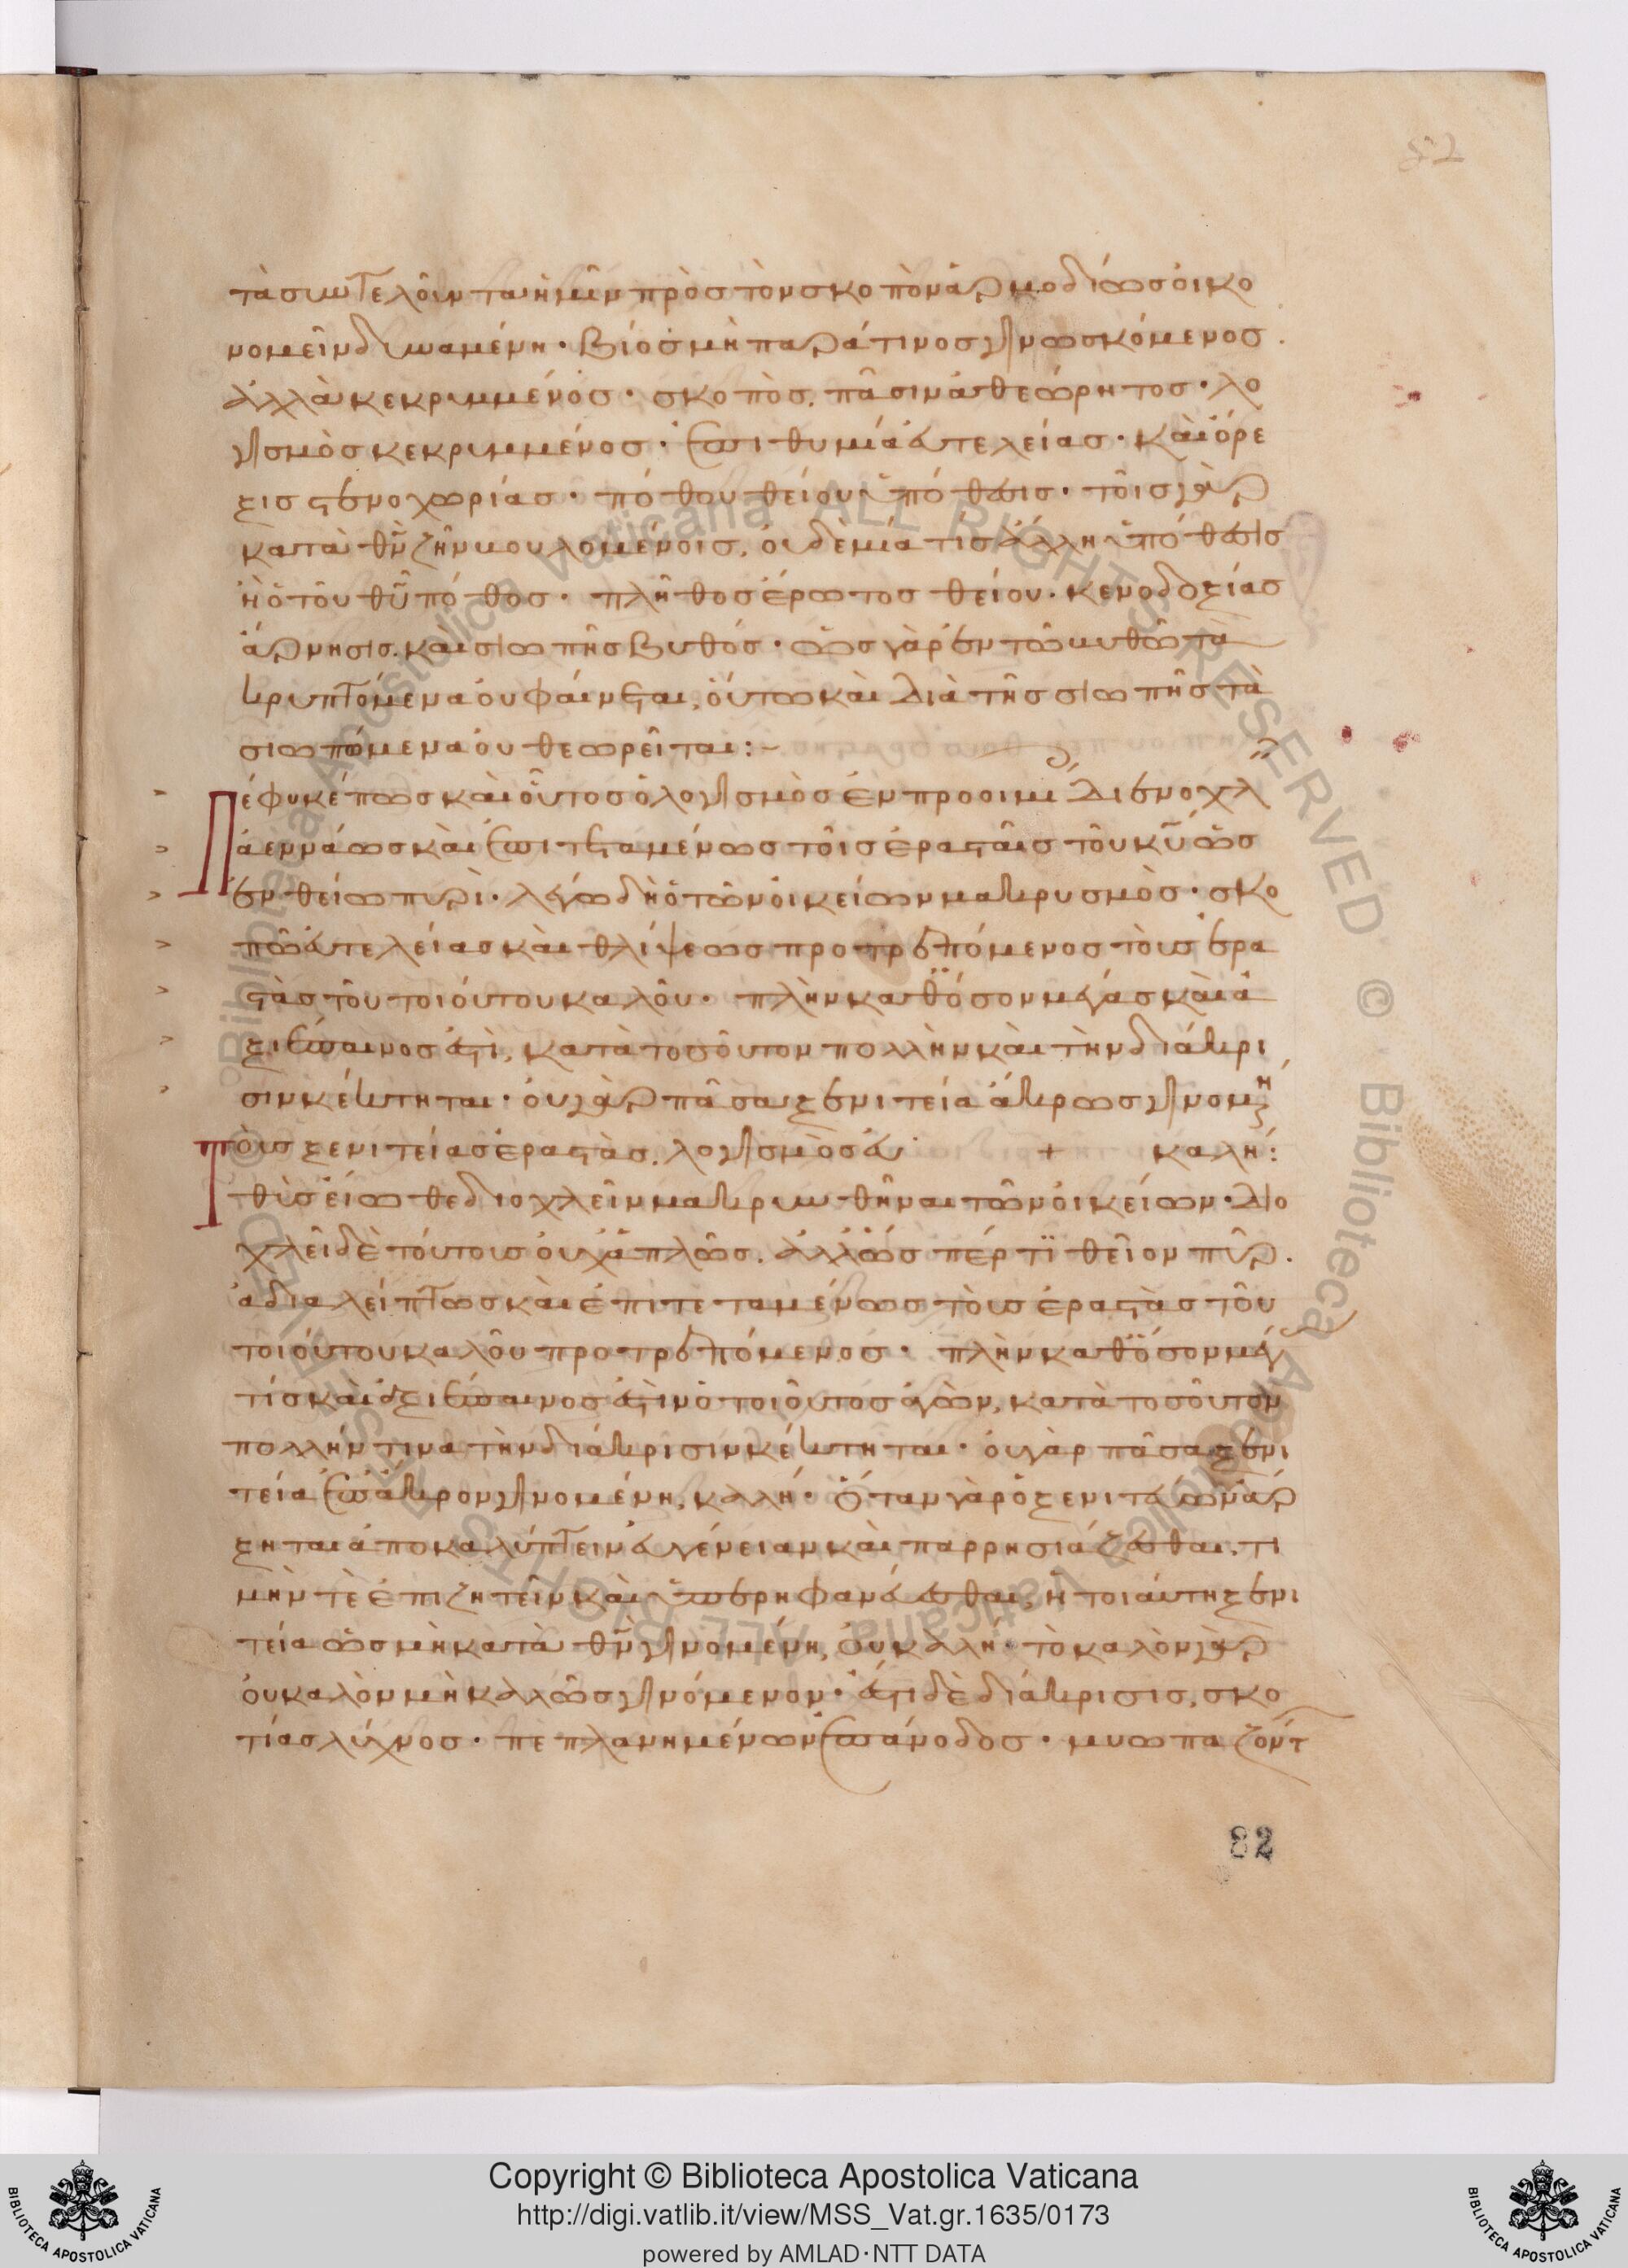 τὰ συντελοῦντα ἡμῖν πρὸς τὸν σκοπὸν ἁρμοδίως οἰκο
νομεῖν δυναμένη· βίος μὴ παρά τινος γινωσκόμενος.
ἀλλὰ κεκρυμμένος· σκοπὸς. πᾶσιν ἀθεώρητος· λο
γισμὸς κεκρυμμένος· ἐπιθυμία εὐτελείας· καὶ ὄρε
ξις στενοχωρίας· πόθου θείου ὑπόθεσις· τοῖς γὰρ
κατὰ θν ζῆν βουλομένοις, οὐδεμία τίς ἄλλη ὑπόθεσις
ἢ ὁ τοῦ θυ πόθος· πλῆθος ἔρωτος θείου· κενοδοξίας
ἄρνησις. καὶ σιωπῆς βυθός· ὡς γὰρ ἐν τῶ βυθῶ τὰ
κρυπτόμενα οὐ φαίνεται, οὕτω καὶ διὰ τῆς σιωπῆς τὰ
σιωπώμενα οὐ θεωρεῖται:~
Πέφυκέ πως καὶ οὗτος ὁ λογισμὸς ἐν προοιμί δι ἐνοχλ
ἀεννάως καὶ ἐπιτεταμένως τοῖς ἐρασταῖς τοῦ κυ ὡς
ἐν θείω πυρὶ· λέγω δὴ ὁ τῶν οἰκείων μακρυσμὸς· σκο
πῶ εὐτελείας καὶ θλίψεως προτρεπόμενος τοὺς ἐρα
στὰς τοῦ τοιούτου καλοῦ· πλὴν καθόσον μέγας καὶ ἀ
ξιέπαινος ἐστὶ, κατὰ τοσοῦτον πολλὴν καὶ τὴν διάκρι
σιν κέκτηται· οὐ γὰρ πᾶσα ξενιτεία ἄκρως γινομένη
Τοὺς ξενιτείας ἐραστὰς. λογισμὸς + καλή:
θὺς εἴωθε διοχλεῖν μακρυνθῆναι τῶν οἰκείων· διο
χλεῖ δὲ τούτοις οὐχ ἁπλῶς. ἀλλ' ὥς πέρ τι θεῖον πῦρ.
ἀδιαλείπτως καὶ ἐπιτεταμένως τοὺς ἐραστὰς τοῦ
τοιούτου καλοῦ προτρεπόμενος· πλὴν καθόσον μέγ
τίς καὶ ἀξιέπαινος ἐστὶν ὁ τοιοῦτος ἀγὼν, κατὰ τοσοῦτον
πολλήν τινα τὴν διάκρισιν κέκτηται· οὐ γὰρ πᾶσα ξενι
τεία ἐπ' ἄκρον γινομένη, καλή· ὅταν γὰρ ὁ ξενιτεύων ἄρ
ξηται ἀποκαλύπτειν εὐγένειαν καὶ παρρησιάζεσθαι. τι
μήν τὲ ἐπιζητεῖν καὶ ὑπερηφανεύεσθαι, ἡ τοιαύτη ξενι
τεία ὡς μὴ κατὰ θν γινομένη, οὐ καλή· τὸ καλὸν γὰρ
οὐ καλὸν μὴ καλῶς γινόμενον· ἔστι δὲ διάκρισις, σκο
τίας λύχνος· πεπλανημένων ἐπάνοδος· μυωπαζόντ
82
Copyright © Biblioteca Apostolica Vaticana
http://digi.vatlib.it/view/MSS_Vat.gr.1635/0173
powered by AMLAD·NTT DATA
BIBLIOTECA APOSTOLICA VATICANA
BIBLIOTECA APOSTOLICA VATICANA